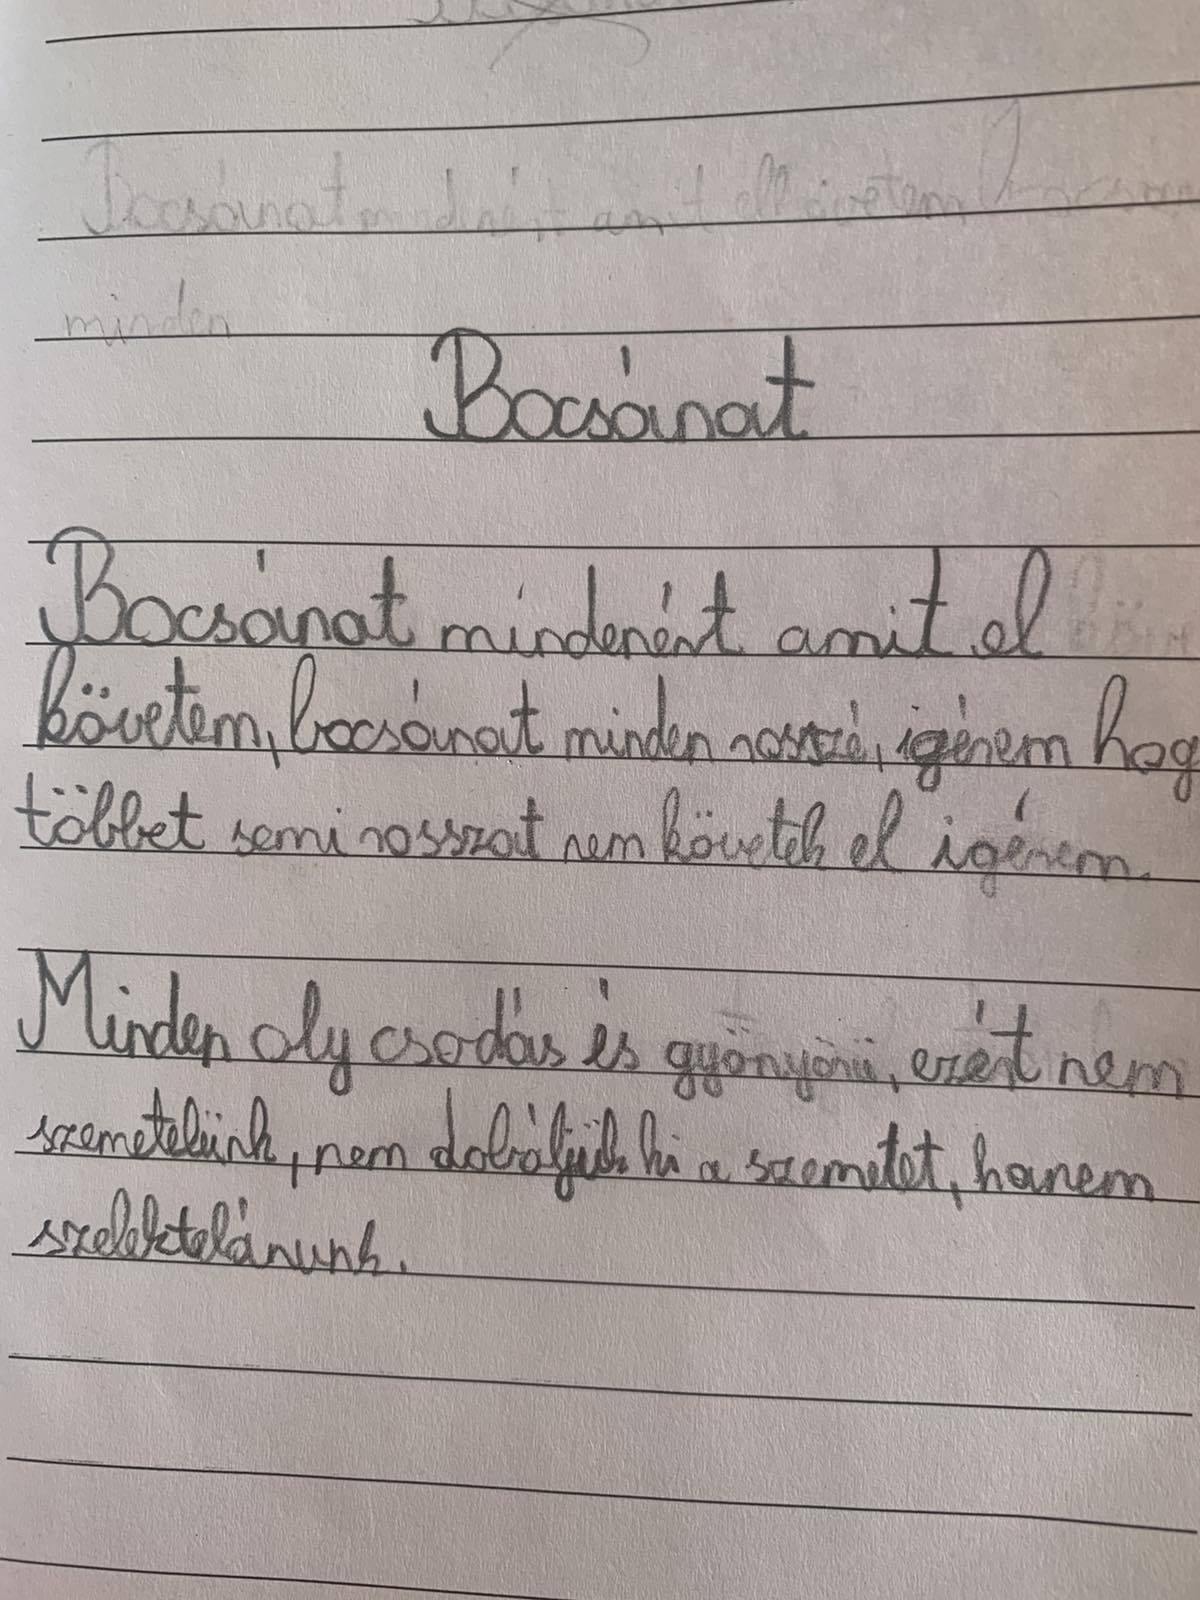 Bocsánat mindenért amit ellkövetem
minden
Bocsánat
Bocsánat mindenért amit el
követem, bocsánat minden rosszé, igérem hog
többet semi rosszat nem követek el igérem.
Minden oly csodás és gyönyörü, ezért nem
szemetelünk, nem dobáljuk ki a szemetet, hanem
szelektelárunk.